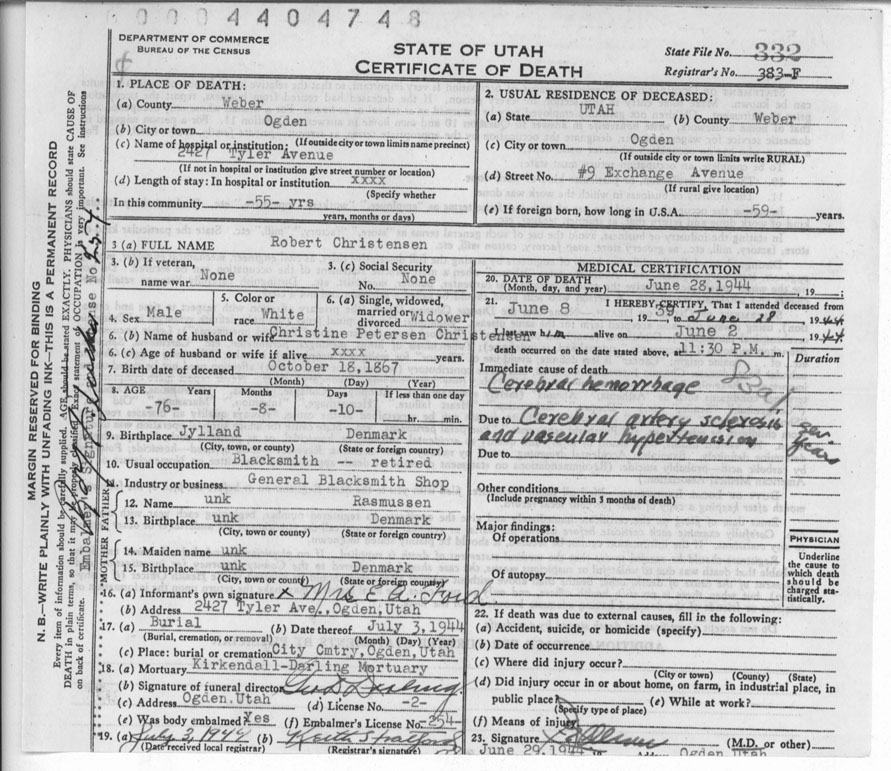 0 0 0 4 4 0 4 7 4 8
DEPARTMENT OF COMMERCE
BUREAU OF THE CENSUS
STATE OF UTAH
CERTIFICATE OF DEATH
State File No. 332
Registrar's No. 383-F
MARGIN RESERVED FOR BINDING
N. B.—WRITE PLAINLY WITH UNFADING INK—THIS IS A PERMANENT RECORD
Every item of information should be carefully supplied. AGE should be stated EXACTLY. PHYSICIANS should state CAUSE OF
DEATH in plain terms, so that it may be properly classified. Exact statement of OCCUPATION is very important. See instructions
on back of certificate.
Embalmer's Signature License No. 254
1. PLACE OF DEATH:
(a) County Weber
(b) City or town Ogden
(c) Name of hospital or institution: (If outside city or town limits name precinct)
2427 Tyler Avenue
(If not in hospital or institution give street number or location)
(d) Length of stay: In hospital or institution xxxx
(Specify whether
In this community -55- yrs
years, months or days)
2. USUAL RESIDENCE OF DECEASED:
(a) State UTAH (b) County Weber
(c) City or town Ogden
(If outside city or town limits write RURAL)
(d) Street No. #9 Exchange Avenue
(If rural give location)
(e) If foreign born, how long in U.S.A. -59- years.
3 (a) FULL NAME Robert Christensen
3. (b) If veteran,
name war None
3. (c) Social Security
No. None
4. Sex Male
5. Color or
race White
6. (a) Single, widowed,
married or
divorced Widower
6. (b) Name of husband or wife Christine Petersen Christensen
6. (c) Age of husband or wife if alive xxxx years.
7. Birth date of deceased October 18, 1867
(Month) (Day) (Year)
8. AGE Years Months Days If less than one day
-76- -8- -10- hr. min.
9. Birthplace Jylland Denmark
(City, town, or county) (State or foreign country)
10. Usual occupation Blacksmith -- retired
11. Industry or business General Blacksmith Shop
FATHER
12. Name unk Rasmussen
13. Birthplace unk Denmark
(City, town, or county) (State or foreign country)
MOTHER
14. Maiden name unk
15. Birthplace unk Denmark
(City, town or county) (State or foreign country)
16. (a) Informant's own signature x Mrs E. A. Ford
(b) Address 2427 Tyler Ave., Ogden, Utah
17. (a) Burial (b) Date thereof July 3, 1944
(Burial, cremation, or removal) (Month) (Day) (Year)
(c) Place: burial or cremation City Cmtry, Ogden, Utah
18. (a) Mortuary Kirkendall-Darling Mortuary
(b) Signature of funeral director Geo D Darling
(c) Address Ogden.Utah (d) License No. -2-
(e) Was body embalmed? Yes (f) Embalmer's License No. -254-
19. (a) July 3, 1944 (b) Keith Stratford
(Date received local registrar) (Registrar's signature)
MEDICAL CERTIFICATION
20. DATE OF DEATH
(Month, day, and year) June 28, 1944 , 19
21. I HEREBY CERTIFY, That I attended deceased from
June 8 , 19 39 to June 28 19 44
I last saw him alive on June 2 , 19 44
death occurred on the date stated above, at 11:30 P.M. m.
Duration
Immediate cause of death 83a1
Cerebral hemorrhage
Due to Cerebral artery sclerosis
and vascular hypertension
sev.
years
Due to
Other conditions
(Include pregnancy within 3 months of death)
Major findings:
Of operations
Of autopsy
PHYSICIAN
Underline
the cause to
which death
should be
charged sta-
tistically.
22. If death was due to external causes, fill in the following:
(a) Accident, suicide, or homicide (specify)
(b) Date of occurrence
(c) Where did injury occur?
(City or town) (County) (State)
(d) Did injury occur in or about home, on farm, in industrial place, in
public place? (e) While at work?
(Specify type of place)
(f) Means of injury
23. Signature (M.D. or other)
June 29, 1944 Ogden Utah